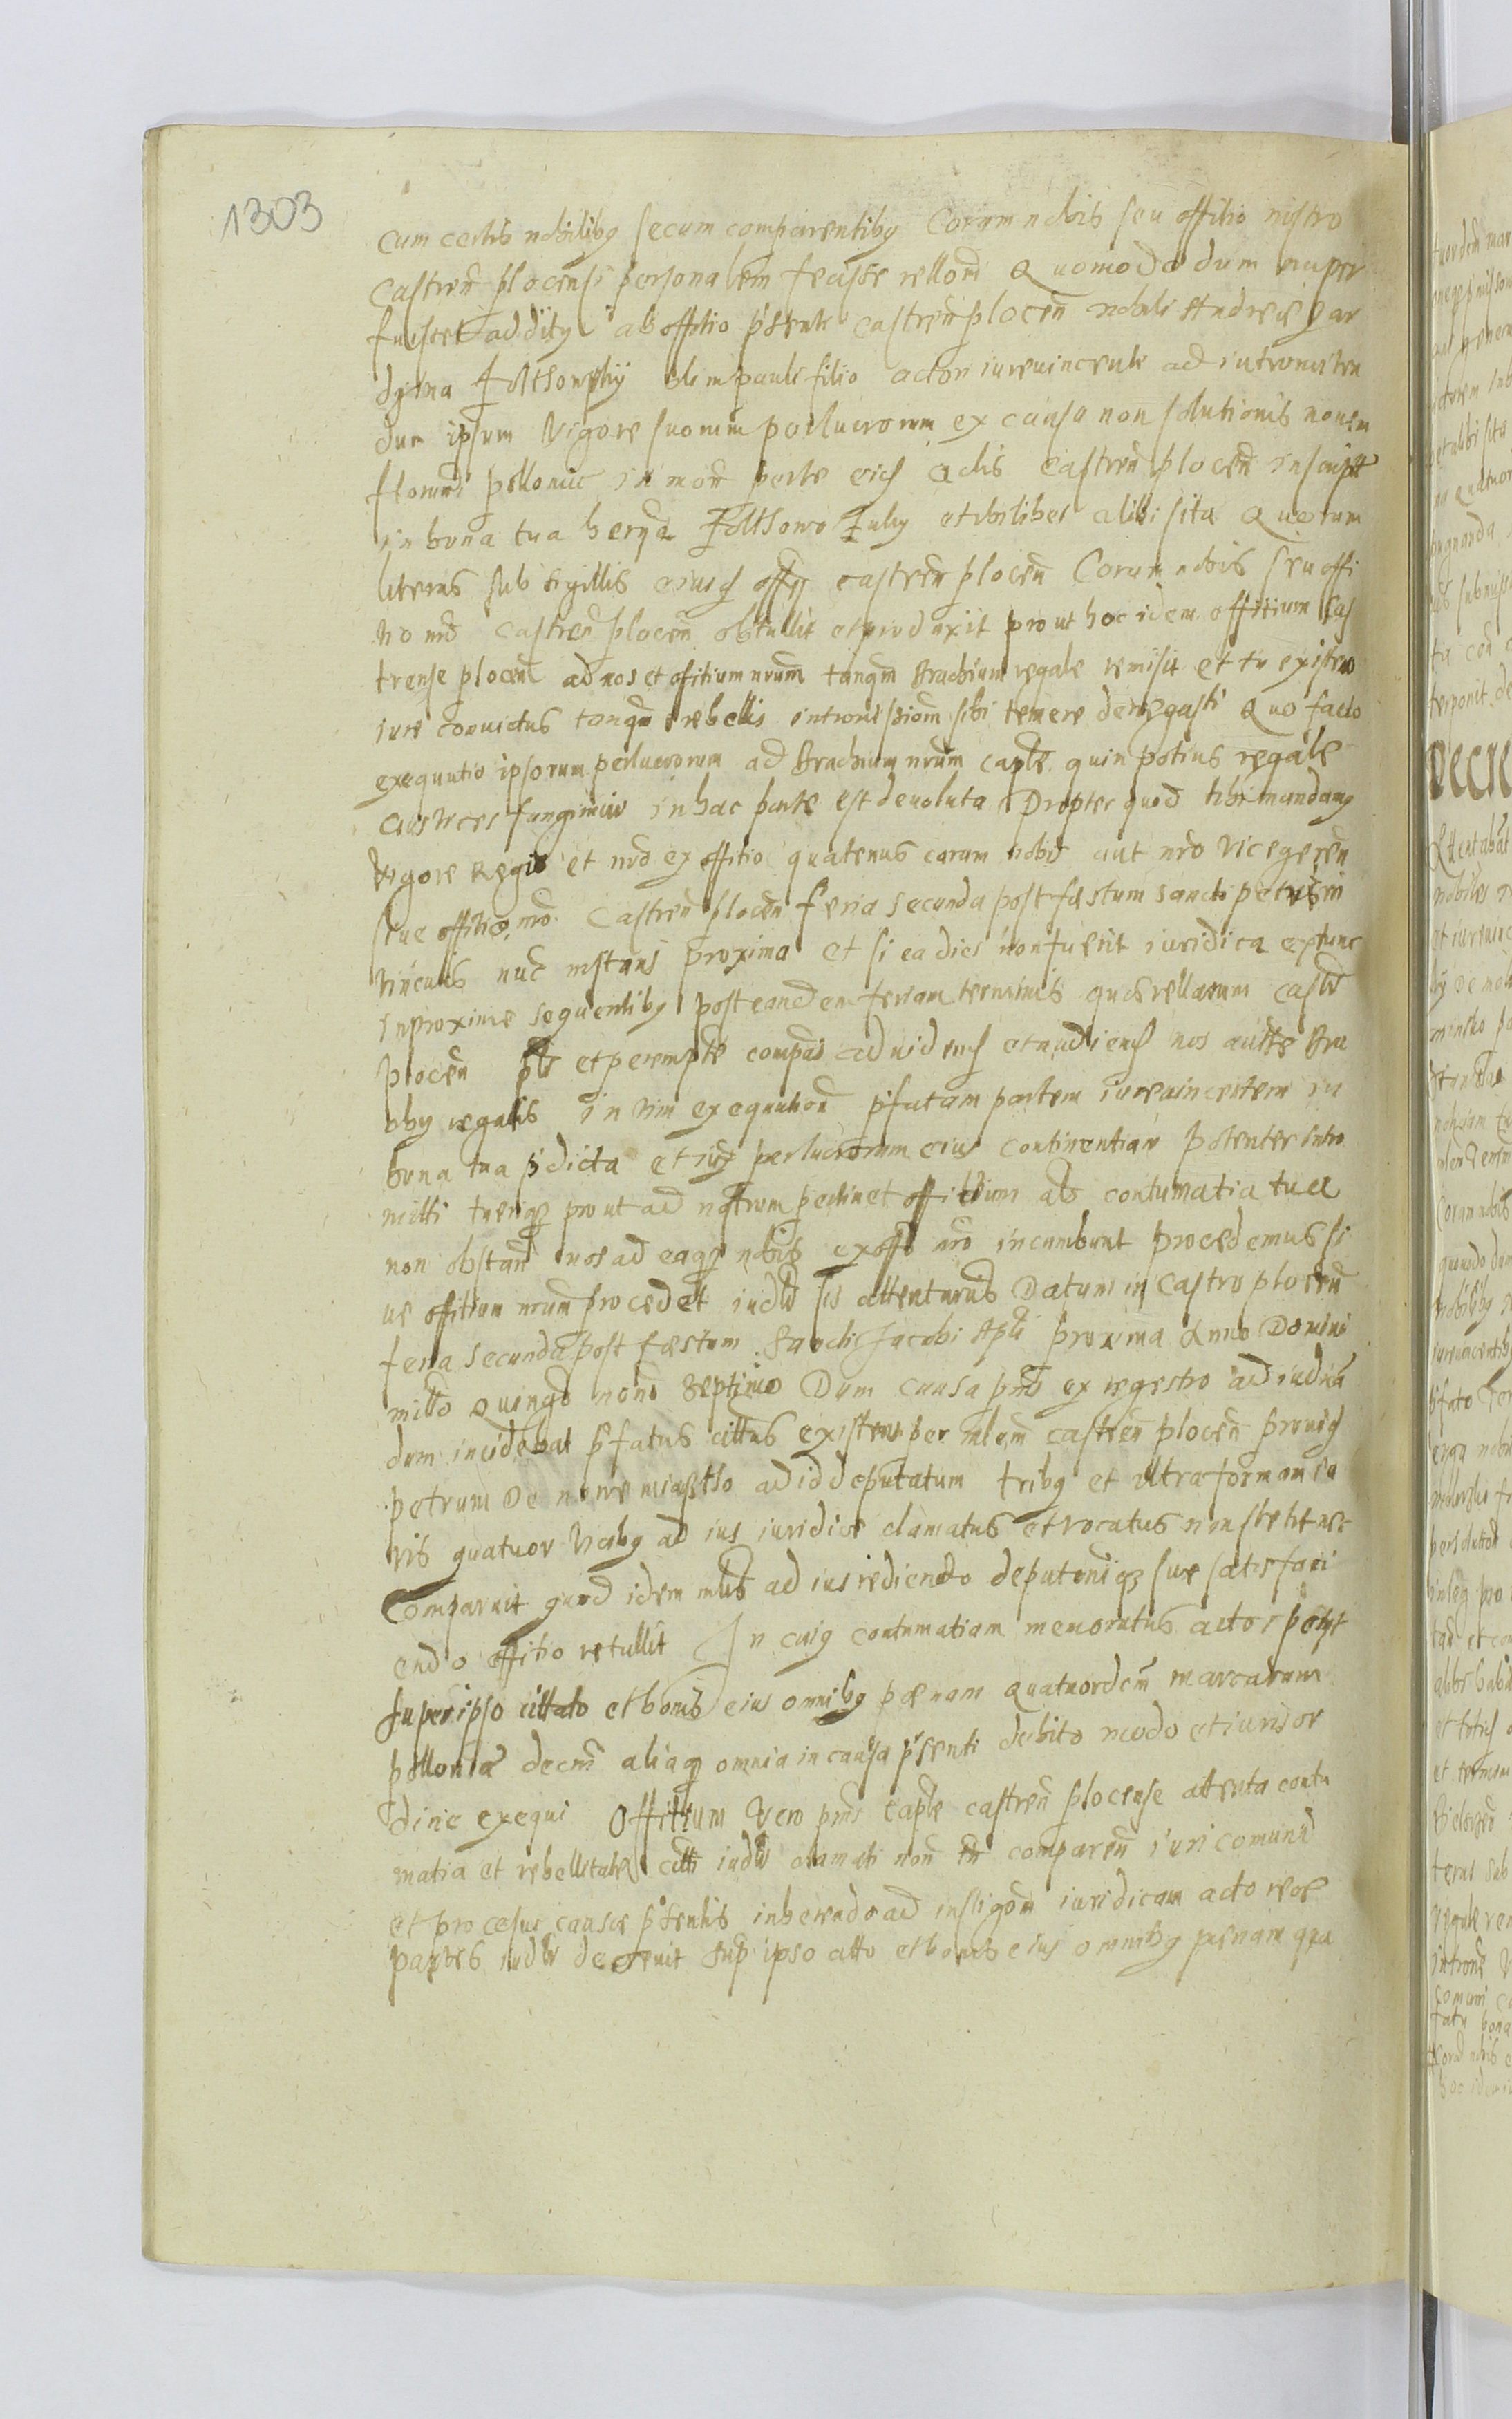 1303
cum certis nobiliby secum comparentiby Coram nobis seu offitio nostro
Castren plocensi personalem fecisse relloni Quomodo dum nuper
fuisset addity ab offitio psente castren plocen nobili Andreæ gar
dyna Foltsowskij olim pauli filio actori iurevincenti ad intromitten
dum ipsum Vigore suorum perlucrorum ex causa non solutionis novem
florum pollonic in mon parte eid Actis Castren plocen inscript
in bona tua hery Foltsowo July et ubilibet alibi sita Quorum
literas sub sigillis eiusd offy castren plocen Coram nobis seu offi
tio nro castren plocen obtullit et produxit prout hoc idem offitium Cas
trense plocen ad nos et ofitium nrum tanqm Brachium regale remisit et tu existens
iure convictus tanqm rebellis intromissiom sibi temere denegasti Quo facto
exequutio ipsorum perlucrorum ad Brachium nrum capte quin potius regale
cuius vices fungimur in hac parte est devoluta Propter quod tibi mandamy
vigore Regio et nro ex offitio quatenus coram nobis aut nro Vicegeren
seu offitio nro Castren plocen feria secunda post festum sancti petri in
vinculis nuc instans proxima et si ea dies non fuerit iuridica extunc
in proxime sequentiby post eandem feriam terminis querellarum castr
plocen et perempte compas ad videnf et audienf nos aucte Bra
chy regalis in vim exequutiom pfatam partem iurevincentem in
bona tua pdicta et iux perlucrorum eius continentiam potenter intro
mitti tueriq prout ad nostrum pertinet offitium als contumatia tua
non obstan nos ad ea q nobis ex offo nro incumbunt procedemus si
ve offitium nrum procedet iudr sis attenturus Datum in Castro plocen
feria secunda post festum Sancti Jacobi Apli proxima Anno Domini
millo quingo nono septimo Dum causa pns ex regestro ad iudica
dum incidebat pfatus cittus existens per mlem castren plocen providf
petrum de nowe miastho ad id deputatum triby et ultra formam iu
ris quatuor viciby ad ius iuridice clamatus et vocatus non stetit nec
Comparuit quod idem mlis ad ius rediendo deputoniq suæ satisfaci
endo offitio retullit In cuiy contumatiam memoratus actor petyt
super ipso cittato et bonis eius omniby pænam quatuordecim marcarum
pollonica decni aliaq omnia in causa psenti debito modo et iuris or
dine exequi Offitium Vero pns capte castren plocense attenta contu
matia et rebellitate citti iudr clamati non tn comparen iuri comuni
et procesui causæ psentis inherendo ad instigom iuridicam actoreæ
partes iudr decrevit sup ipso citto et bonis eius omniby penam qua